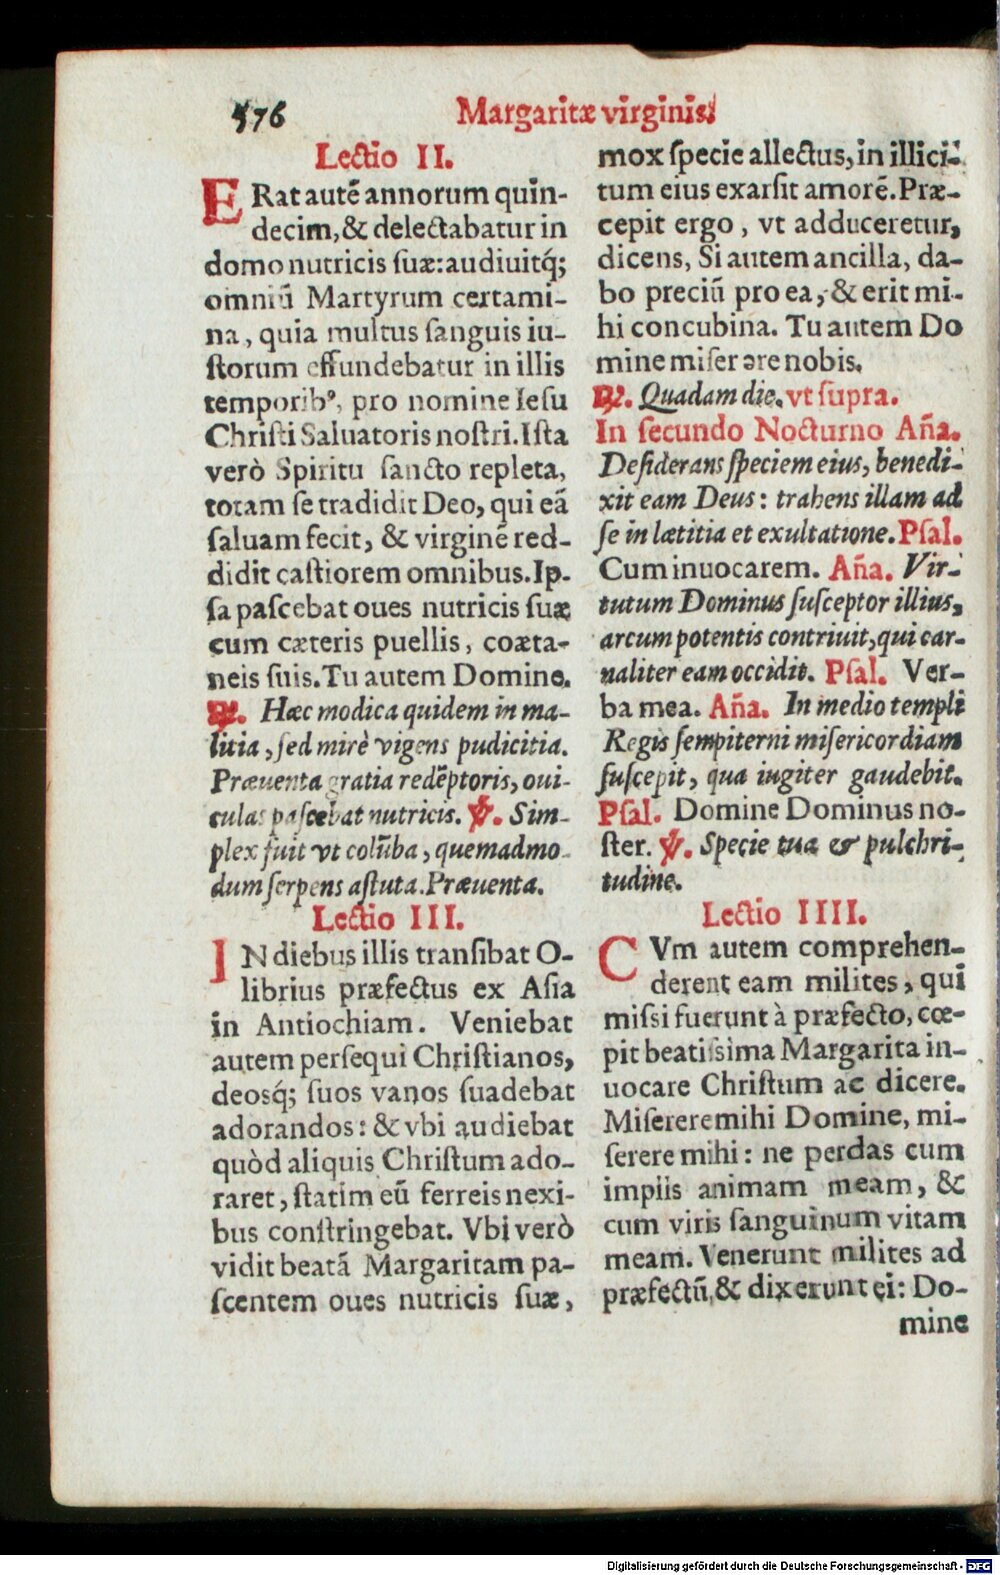 576
Margaritæ virginis.
Lectio II.
ERat autē annorum quin-
decim, & delectabatur in
domo nutricis suæ: audiuitq́;
omniū Martyrum certami-
na, quia multus sanguis iu-
storum effundebatur in illis
temporibꝰ, pro nomine Iesu
Christi Saluatoris nostri. Ista
verò Spiritu sancto repleta,
totam se tradidit Deo, qui eā
saluam fecit, & virginē red-
didit castiorem omnibus. Ip-
sa pascebat oues nutricis suæ
cum cæteris puellis, coæta-
neis suis. Tu autem Domine.
℟. Hæc modica quidem in ma-
litia, sed mirè vigens pudicitia.
Præuenta gratia redēptoris, oui-
culas pascebat nutricis. ℣. Sim-
plex fuit vt colūba, quemadmo-
dum serpens astuta. Præuenta.
Lectio III.
IN diebus illis transibat O-
librius præfectus ex Asia
in Antiochiam. Veniebat
autem persequi Christianos,
deosq́; suos vanos suadebat
adorandos: & vbi audiebat
quòd aliquis Christum ado-
raret, statim eū ferreis nexi-
bus constringebat. Vbi verò
vidit beatā Margaritam pa-
scentem oues nutricis suæ,
mox specie allectus, in illici-
tum eius exarsit amorē. Præ-
cepit ergo, vt adduceretur,
dicens, Si autem ancilla, da-
bo preciū pro ea, & erit mi-
hi concubina. Tu autem Do
mine miserere nobis.
℟. Quadam die. vt supra.
In secundo Nocturno Aña.
Desiderans speciem eius, benedi-
xit eam Deus: trahens illam ad
se in lætitia et exultatione. Psal.
Cum inuocarem. Aña. Vir-
tutum Dominus susceptor illius,
arcum potentis contriuit, qui car-
naliter eam occidit. Psal. Ver-
ba mea. Aña. In medio templi
Regis sempiterni misericordiam
suscepit, qua iugiter gaudebit.
Psal. Domine Dominus no-
ster. ℣. Specie tua & pulchri-
tudine.
Lectio IIII.
CVm autem comprehen-
derent eam milites, qui
missi fuerunt à præfecto, cœ-
pit beatissima Margarita in-
uocare Christum ac dicere.
Miserere mihi Domine, mi-
serere mihi: ne perdas cum
impiis animam meam, &
cum viris sanguinum vitam
meam. Venerunt milites ad
præfectū, & dixerunt ei: Do-
mine
Digitalisierung gefördert durch die Deutsche Forschungsgemeinschaft - DFG